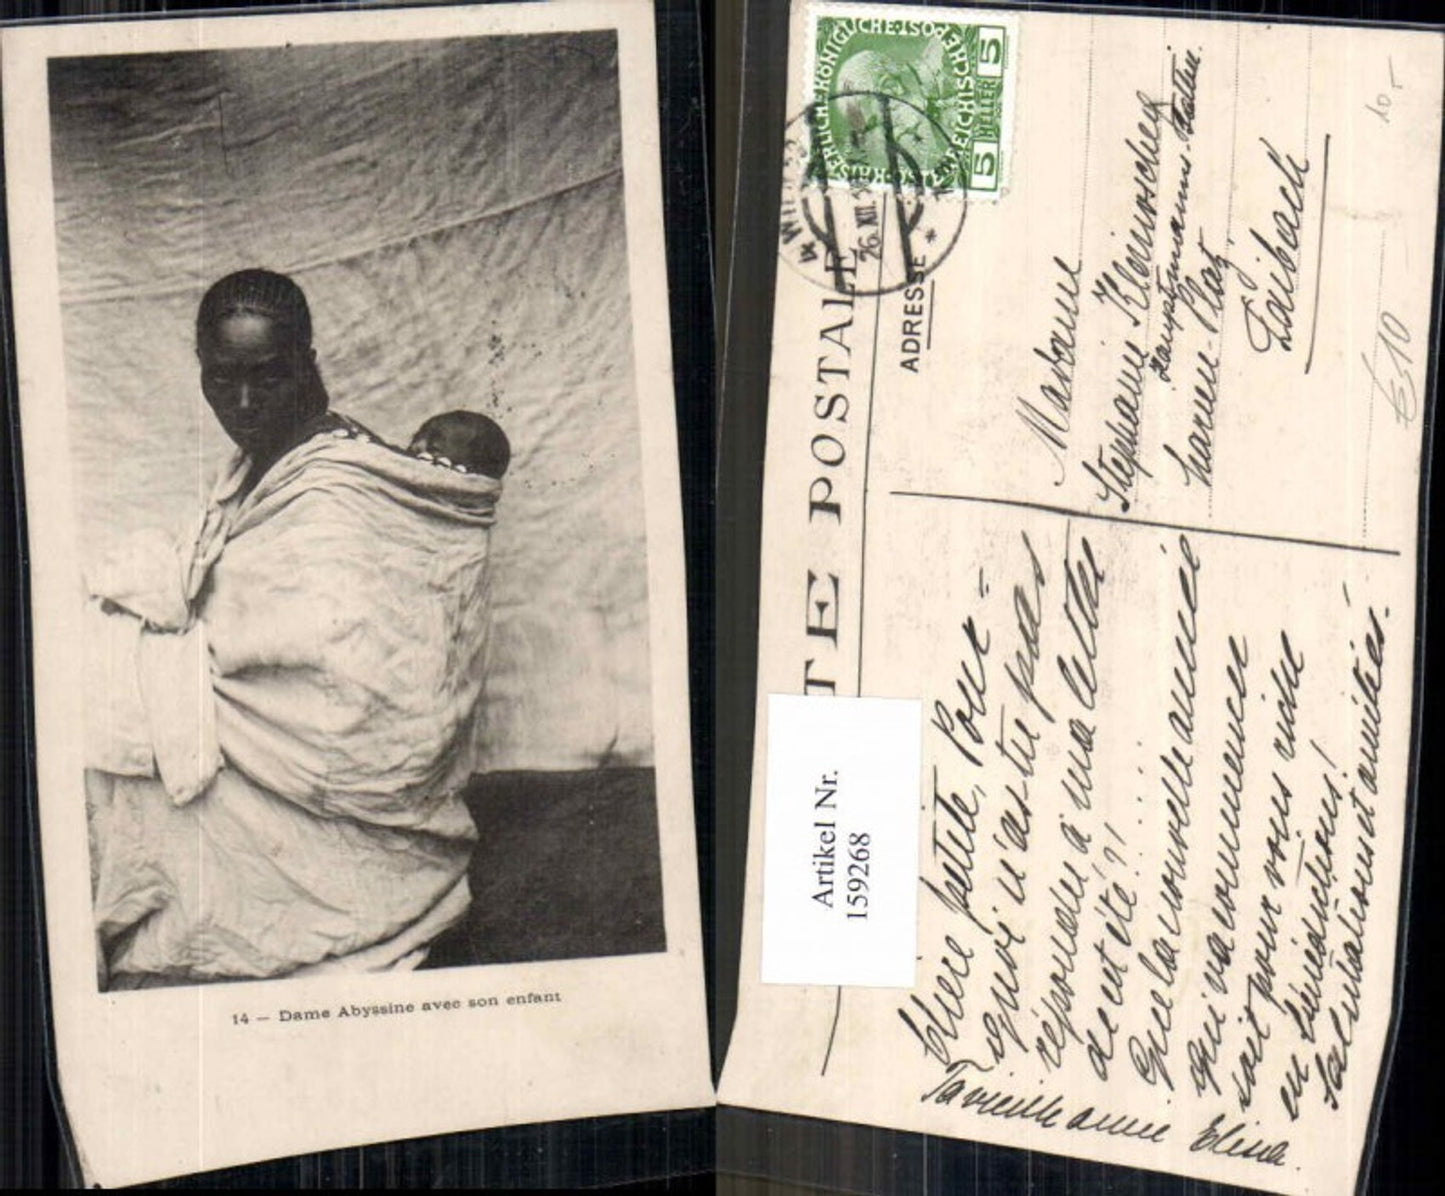 14 — Dame Abyssine avec son enfant
KAISERLICHE KÖNIGLICHE ÖSTERREICHISCHE POST
5 HELLER 5
WIEN
26.XII.
CARTE POSTALE
ADRESSE
Madame
Stephanie
Laibach
Chère petite, Pour=
quoi n'as-tu pas
répondu à ma lettre
de cet été?! ....
Que la nouvelle année
qui va commencer
soit pour vous riche
en bénédictions!
Salutations et amitiés.
Ta vieille amie Elise.
Artikel Nr.
159268
€ 10
10,-